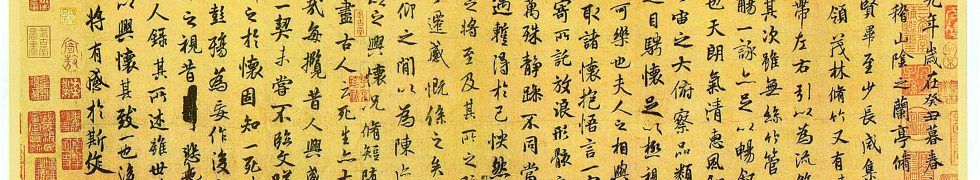 九年歲在癸丑暮春
稽山陰之蘭亭脩
賢畢至少長咸集
領茂林脩竹又有
帶左右引以為流
其次雖無絲竹管
觴一詠亦足以暢敘
也天朗氣清惠風
宙之大俯察品類
目騁懷足以極視
可樂也夫人之相與
取諸懷抱悟言一
寄所託放浪形骸
萬殊靜躁不同當
遇蹔得於己怏然
之將至及其所之
遷感慨係之矣
仰之間以為陳
以之興懷況脩短隨
盡古人云死生亦
哉每攬昔人興感
一契未嘗不臨文嗟
之於懷固知一死
彭殤為妄作後
之視昔悲夫
人錄其所述雖世
以興懷其致一也後
將有感於斯文